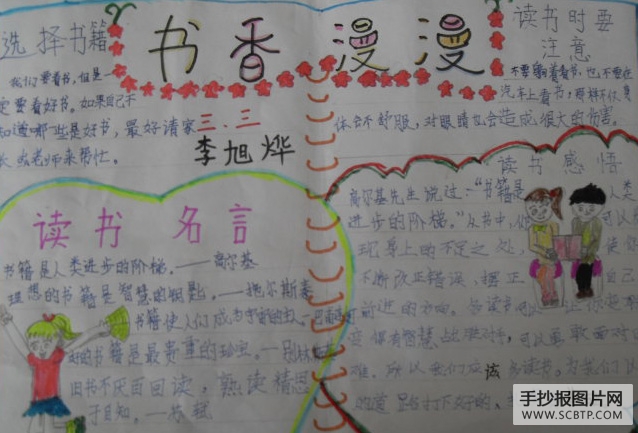 书香漫漫
选择书籍
我们要看书,但是一
定要看好书,如果自己不
知道哪些是好书,最好请家
长或老师来帮忙。
三.三
李旭烨
读书时要
注意
不要躺着看书,也不要在
汽车上看书,那样不仅身
体会不舒服,对眼睛也会造成很大的伤害。
读书名言
书籍是人类进步的阶梯。——高尔基
理想的书籍是智慧的钥匙。——托尔斯泰
书籍使人们成为宇宙的主人
好的书籍是最贵重的珍宝。——别林
旧书不厌百回读,熟读精思
子自知。——苏轼
读书感悟
高尔基先生说过:“书籍是人类
进步的阶梯。”从书中,你可以
现身上的不足之处,使你
不断改正错误,摆正自己
前进的方向。
保有智慧战胜对手,可以勇敢面对
难。所以我们应该多读书。为我们
的道路打下好的、
手抄报图片网
WWW.SCBTP.COM